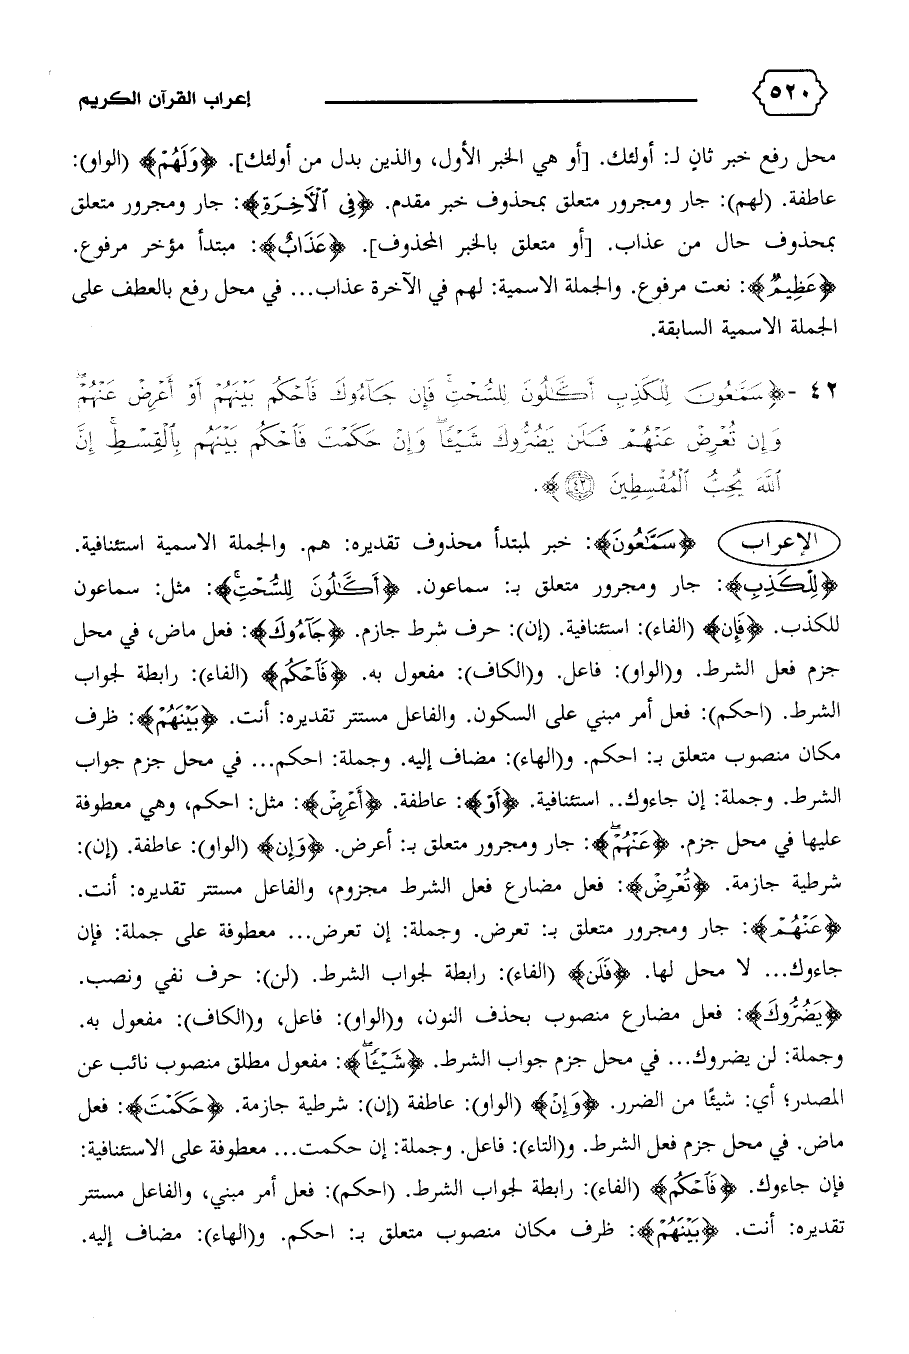 ٥٢٠ إعراب القرآن الكريم
محل رفع خبر ثانٍ لـ: أولئك. [أو هي الخبر الأول، والذين بدل من أولئك]. ﴿وَلَهُمْ﴾ (الواو):
عاطفة. (لهم): جار ومجرور متعلق بمحذوف خبر مقدم. ﴿فِي ٱلْآخِرَةِ﴾: جار ومجرور متعلق
بمحذوف حال من عذاب. [أو متعلق بالخبر المحذوف]. ﴿عَذَابٌ﴾: مبتدأ مؤخر مرفوع.
﴿عَظِيمٌ﴾: نعت مرفوع. والجملة الاسمية: لهم في الآخرة عذاب... في محل رفع بالعطف على
الجملة الاسمية السابقة.
٤٢ -﴿سَمَّٰعُونَ لِلْكَذِبِ أَكَّٰلُونَ لِلسُّحْتِۚ فَإِن جَآءُوكَ فَٱحْكُم بَيْنَهُمْ أَوْ أَعْرِضْ عَنْهُمْۖ
وَإِن تُعْرِضْ عَنْهُمْ فَلَن يَضُرُّوكَ شَيْـًٔاۖ وَإِنْ حَكَمْتَ فَٱحْكُم بَيْنَهُم بِٱلْقِسْطِۚ إِنَّ
ٱللَّهَ يُحِبُّ ٱلْمُقْسِطِينَ ٤٢﴾.
الإعراب ﴿سَمَّٰعُونَ﴾: خبر لمبتدأ محذوف تقديره: هم. والجملة الاسمية استئنافية.
﴿لِلْكَذِبِ﴾: جار ومجرور متعلق بـ: سماعون. ﴿أَكَّٰلُونَ لِلسُّحْتِۚ﴾: مثل: سماعون
للكذب. ﴿فَإِن﴾ (الفاء): استئنافية. (إن): حرف شرط جازم. ﴿جَآءُوكَ﴾: فعل ماض، في محل
جزم فعل الشرط. و(الواو): فاعل. و(الكاف): مفعول به. ﴿فَٱحْكُم﴾ (الفاء): رابطة لجواب
الشرط. (احكم): فعل أمر مبني على السكون. والفاعل مستتر تقديره: أنت. ﴿بَيْنَهُمْ﴾: ظرف
مكان منصوب متعلق بـ: احكم. و(الهاء): مضاف إليه. وجملة: احكم... في محل جزم جواب
الشرط. وجملة: إن جاءوك.. استئنافية. ﴿أَوْ﴾: عاطفة. ﴿أَعْرِضْ﴾: مثل: احكم، وهي معطوفة
عليها في محل جزم. ﴿عَنْهُمْۖ﴾: جار ومجرور متعلق بـ: أعرض. ﴿وَإِن﴾ (الواو): عاطفة. (إن):
شرطية جازمة. ﴿تُعْرِضْ﴾: فعل مضارع فعل الشرط مجزوم، والفاعل مستتر تقديره: أنت.
﴿عَنْهُمْ﴾: جار ومجرور متعلق بـ: تعرض. وجملة: إن تعرض... معطوفة على جملة: فإن
جاءوك... لا محل لها. ﴿فَلَن﴾ (الفاء): رابطة لجواب الشرط. (لن): حرف نفي ونصب.
﴿يَضُرُّوكَ﴾: فعل مضارع منصوب بحذف النون، و(الواو): فاعل، و(الكاف): مفعول به.
وجملة: لن يضروك... في محل جزم جواب الشرط. ﴿شَيْـًٔاۖ﴾: مفعول مطلق منصوب نائب عن
المصدر؛ أي: شيئًا من الضرر. ﴿وَإِنْ﴾ (الواو): عاطفة (إن): شرطية جازمة. ﴿حَكَمْتَ﴾: فعل
ماض. في محل جزم فعل الشرط. و(التاء): فاعل. وجملة: إن حكمت... معطوفة على الاستئنافية:
فإن جاءوك. ﴿فَٱحْكُم﴾ (الفاء): رابطة لجواب الشرط. (احكم): فعل أمر مبني، والفاعل مستتر
تقديره: أنت. ﴿بَيْنَهُمْ﴾: ظرف مكان منصوب متعلق بـ: احكم. و(الهاء): مضاف إليه.